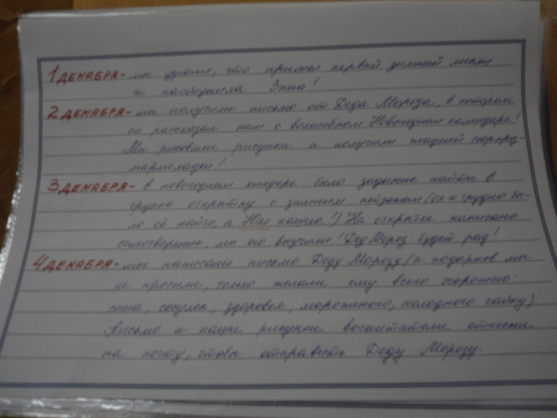 1 ДЕКАБРЯ - мы узнали, что пришёл первый зимний месяц
и наступила Зима!
2 ДЕКАБРЯ - мы получили письмо от Деда Мороза, в котором
он рассказал нам о волшебном Новогоднем календаре!
Мы рисовали рисунки и получили сюрприз-
мармеладки!
3 ДЕКАБРЯ - в новогоднем было задание найти в
группе открытку с зимним пейзажом (ох и трудно бы-
ло её найти, а нашла!) На открытке написано
стихотворение, мы его выучили! Дед Мороз будет рад!
4 ДЕКАБРЯ - мы написали письмо Деду Морозу (и подарков мы
не просили, только желали ему всего хорошего
снега, сосулек, здоровья, мороженого, холодного чайку)
Письмо и наши рисунки воспитатели отнесли
на почту, чтобы отправить Деду Морозу.